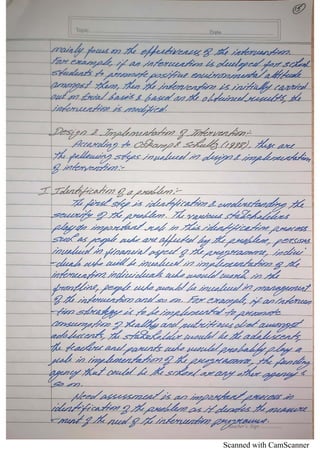 15
Topic
Date
mainly focus on the effectiveness of the intervention.
For example, if an intervention is developed for school
students to promote positive environmental attitude
amongst them, then the intervention is initially carried
out on trial basis & based on the obtained results, the
intervention is modified.
Design & Implementation of Intervention:-
According to & Schultz (1988), there are
the following steps involved in design & implementation
of intervention:-
I Identification of a problem:-
The first step is identification & understanding the
security of the problem. The various stakeholders
play an important role in this identification process
such as people who are affected by the problem, persons
involved in financial aspect of the programme, indivi
-duals who will be involved in implementation of the
intervention individuals who would work in the
frontline, people who would be involved in management
of the intervention and so on. For example, if an interven
-tion strategy is to be implemented to promote
consumption of healthy and nutritious diet amongst
adolescents, the stakeholder would be the adolescents,
the teachers and parents who would probably play a
role in implementation of the programme, the funding
agency that could be the school or any other agency &
so on.
Need assessment is an important process in
identification of the problem as it denotes the measure
-ment of the need of the intervention programme.
Teacher's Sign
Scanned with CamScanner